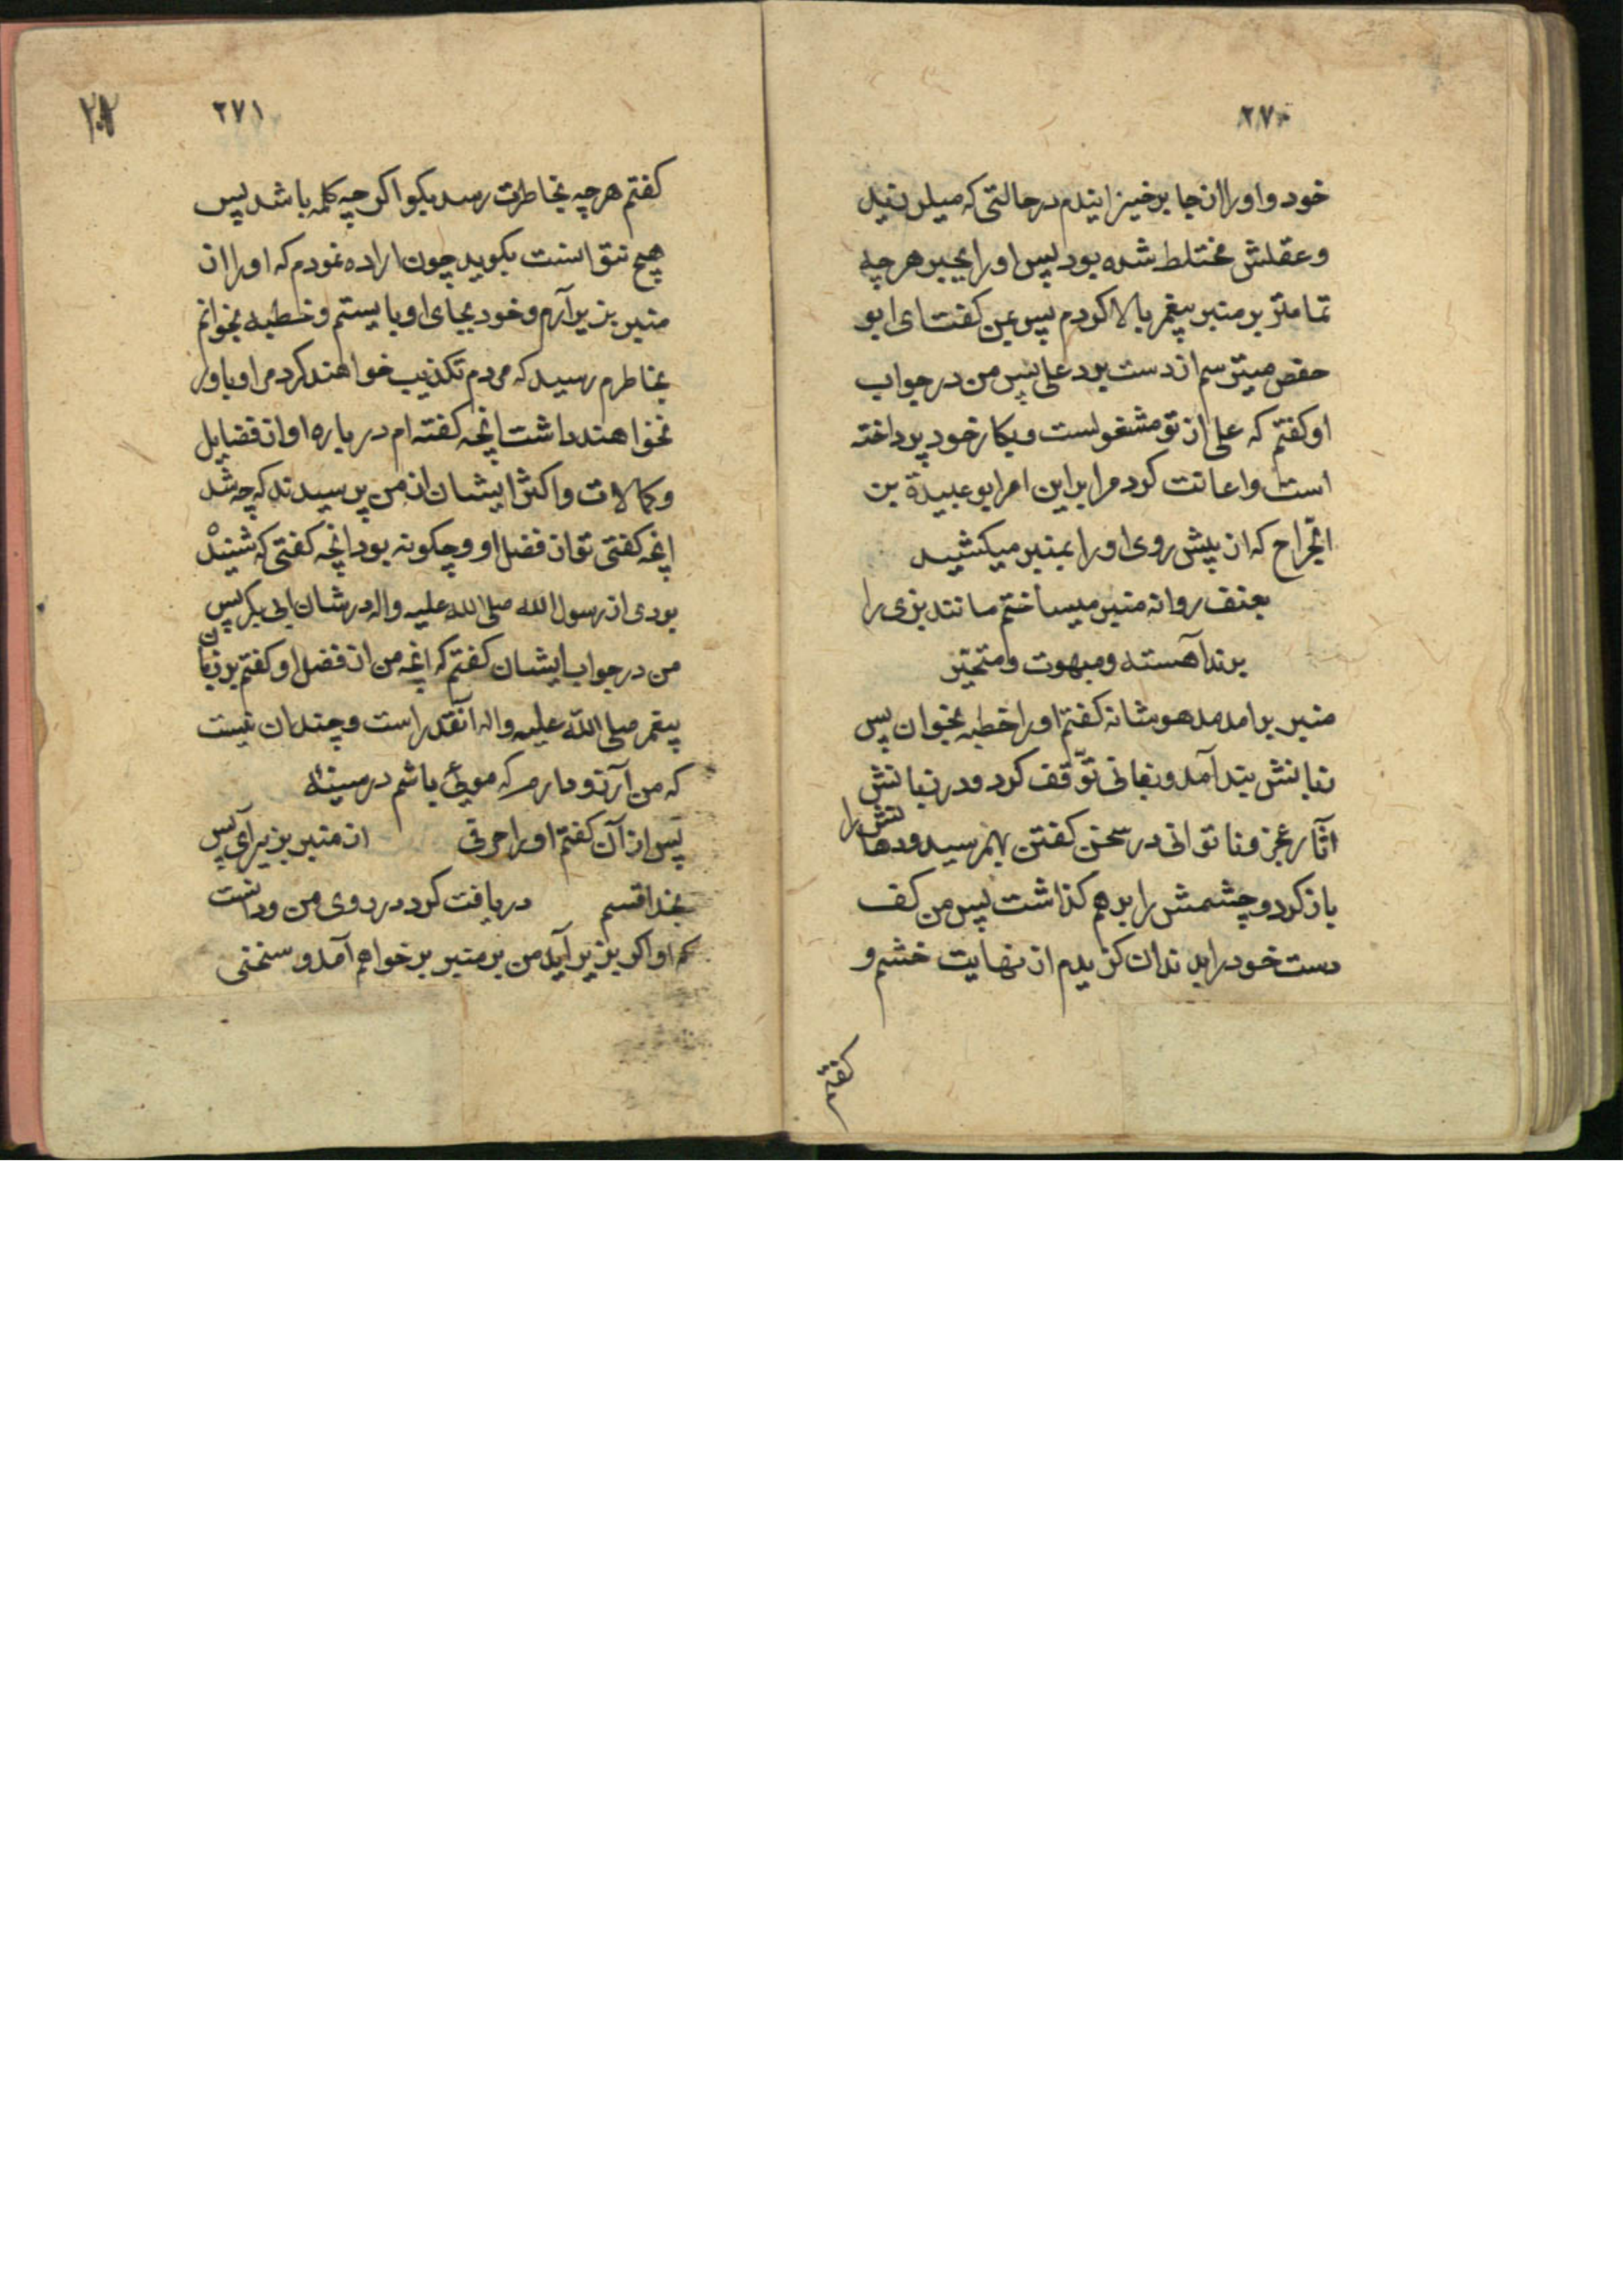 ۲۷۰
خود و اورا از جا برخیزانیدم در حالتی که میلرزید
و عقلش مختلط شده بود پس اورا بجبر هرچه
تمامتر بر منبر پیغمبر بالا کردم پس بمن کفت ای ابو
حفص میترسم از دست برد علی پس من در جواب
او کفتم که علی از تو مشغولست و بکار خود پرداخته
است و اعانت کرد مرا براین امر ابو عبیدة بن
الجّراح که از پیش روی اورا بمنبر میکشید
بعنف روانه منبر میساختم مانند بزی را
برند آهسته و مبهوت و متحیّر
منبر برامد مدهوشانه کفتم اورا خطبه بخوان پس
زبانش بند آمد و زمانی توّقف کرد و در زبانش
آثار عجز و ناتوانی در سخن کفتن بهمرسید و دهانش را
باز کرد و چشمش را برهم کذاشت پس من کف
دست خود را بدندان کزیدم از نهایت خشم و
کفتم
۲۷۱
کفتم هرچه بخاطرت رسد بکو اکرچه کلمه باشد پس
هیچ نتوانست بکوید چون اراده نمودم که اورا از
منبر بزیر آرم و خود بجای او بایستم و خطبه بخوانم
بخاطرم رسید که مردم تکذیب خواهند کرد مرا و باور
نخواهند داشت انچه کفته ام در باره او از فضایل
و کمالات و اکثر ایشان از من پرسیدند که چه شد
انچه کفتی تو از فضل او و چکونه بود انچه کفتی که شنیده
بودی از رسول الله صلی الله علیه واله در شان ابی بکر پس
من در جواب ایشان کفتم که انچه من از فضل او کفتم بر زبان
پیغمبر صلی الله علیه واله آنقدر است و چندان نیست
که من آرزو دارم که مویی باشم در سینه
پس از آن کفتم اورا حرفی از منبر بزیر آی پس
بخدا قسم دریافت کرد در روی من و دانست
که او اکر بزیر آید من بر منبر بر خواهم آمد و سخنی